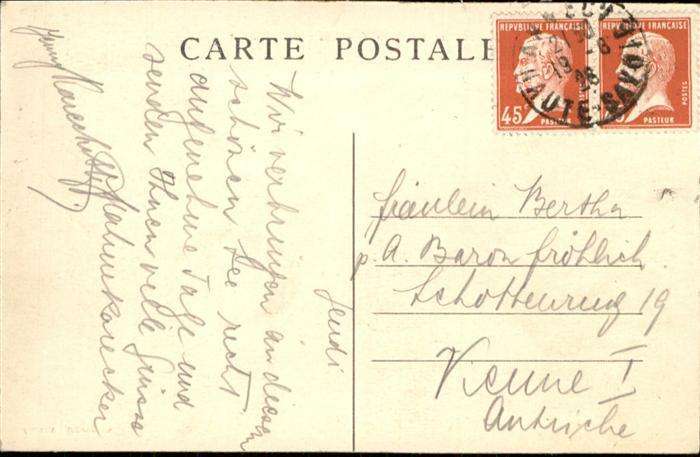 CARTE POSTALE
REPVBLIQUE FRANÇAISE
45c
POSTES
PASTEUR
REPVBLIQUE FRANÇAISE
POSTES
PASTEUR
ANNECY
HAUTE-SAVOIE
Jeudi
Wir verbringen an diesem
schönen See recht
angenehme Tage und
senden Ihnen viele Grüsse
Fräulein Bertha
p. A. Baron Fröhlich
Schottenring 19
Vienne I
Autriche